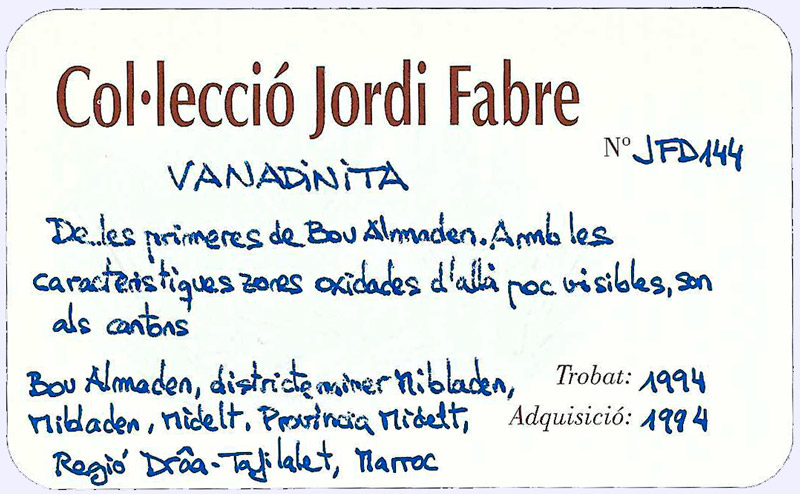 Col·lecció Jordi Fabre
Nº JFD144
VANADINITA
De les primeres de Bou Almaden. Amb les
caracteristiques zones oxidades d'allà poc visibles, son
als cantons
Bou Almaden, districte miner Mibladen,
Mibladen, Midelt, Província Midelt,
Regió Drâa-Tafilalet, Marroc
Trobat: 1994
Adquisició: 1994